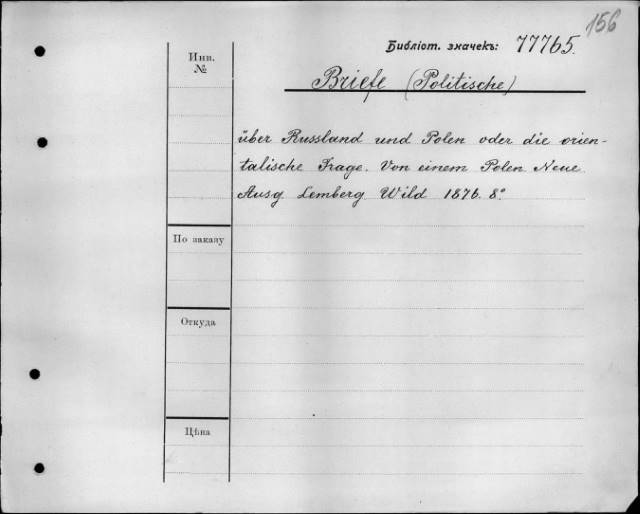 156
Библіот. значекъ: 77765.
Инв.
№
Briefe (Politische)
über Russland und Polen oder die orien-
talische Frage. Von einem Polen Neue
Ausg. Lemberg Wild 1876. 8°
По заказу
Откуда
Цѣна